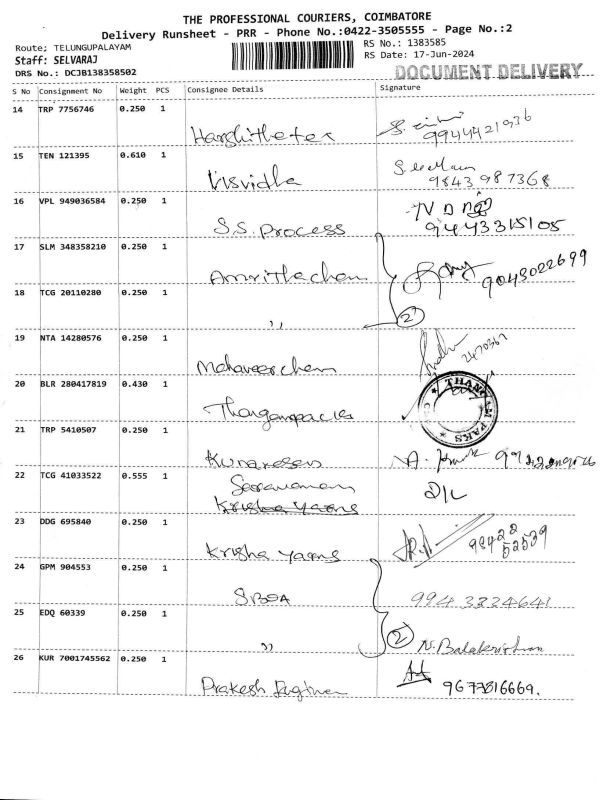 THE PROFESSIONAL COURIERS, COIMBATORE
Delivery Runsheet - PRR - Phone No.:0422-3505555 - Page No.:2
Route; TELUNGUPALAYAM
RS No.: 1383585
Staff: SELVARAJ
RS Date: 17-Jun-2024
DRS No.: DCJB138358502
DOCUMENT DELIVERY
S No Consignment No Weight PCS Consignee Details Signature
14 TRP 7756746 0.250 1
15 TEN 121395 0.610 1
Visvidha
9843987368
16 VPL 949036584 0.250 1
S.S. Process
9443315105
17 SLM 348358210 0.250 1
Amrithachem
9043022699
18 TCG 20110280 0.250 1
"
2
19 NTA 14280576 0.250 1
Mahaveerchem
2470367
20 BLR 280417819 0.430 1
THANGAM PAKS
21 TRP 5410507 0.250 1
22 TCG 41033522 0.555 1
D/L
Krisha Yarns
23 DDG 695840 0.250 1
Krisha Yarns
99422
52539
24 GPM 904553 0.250 1
9943224641
25 EDQ 60339 0.250 1
"
2
N. Balakrishnan
26 KUR 7001745562 0.250 1
Prakesh
9677816669.